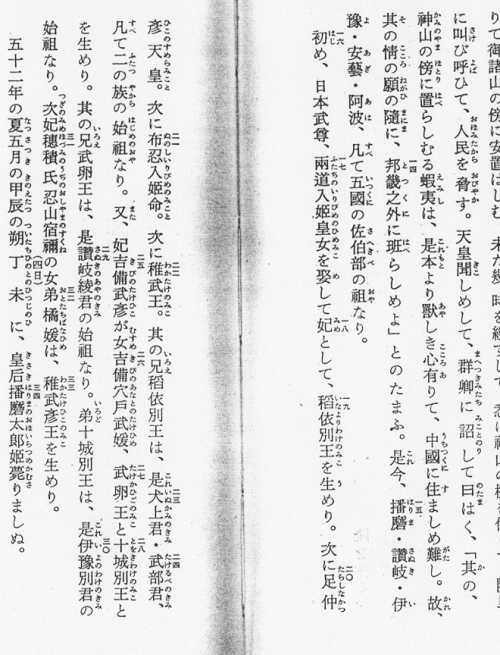 りて御諸山の傍に安置はしむ。未だ幾時を經ずして、悉に神山の樹を
に叫び呼ひて、人民を脅す。天皇聞しめして、群卿に詔して曰はく、「其の、
神山の傍に置らしむる蝦夷は、是本より獸しき心有りて、中國に住ましめ難し。故、
其の情の願の隨に、邦畿之外に班らしめよ」とのたまふ。是今、播磨・讚岐・伊
豫・安藝・阿波、凡て五國の佐伯部の祖なり。
初め、日本武尊、兩道入姫皇女を娶して妃として、稻依別王を生めり。次に足仲
彥天皇。次に布忍入姫命。次に稚武王。其の兄稻依別王は、是犬上君・武部君、
凡て二の族の始祖なり。又、妃吉備武彥が女吉備穴戸武媛、武卵王と十城別王と
を生めり。其の兄武卵王は、是讚岐綾君の始祖なり。弟十城別王は、是伊豫別君の
始祖なり。次妃穗積氏忍山宿禰の女弟橘媛は、稚武彥王を生めり。
五十二年の夏五月の甲辰の朔丁未(四日)に、皇后播磨太郎姫薨りましぬ。